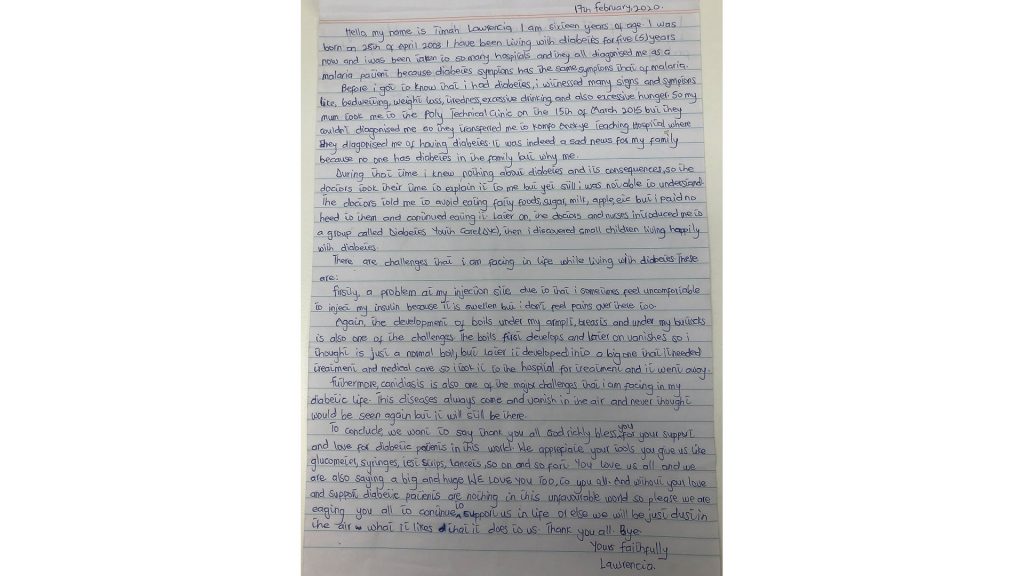 17th february, 2020.
Hello, my name is Timah Lawrencia. I am sixteen years of age. I was
born on 28th of April 2003. I have been living with diabetes for five (5) years
now and i was been taken to so many hospitals and they all diagonised me as a
malaria patient because diabetes symptoms has the same symptoms that of malaria.
Before i got to know that i had diabetes, i witnessed many signs and symptoms
like, bedwetting, weight loss, tiredness, excessive drinking and also excessive hunger. So my
mum took me to the Poly Technical Clinic on the 15th of March 2015 but they
couldn't diagonised me so they transferred me to Komfo Anokye Teaching Hospital where
they diagonised me of having diabetes. It was indeed a sad news for my family
because no one has diabetes in the family but why me.
During that time i knew nothing about diabetes and its consequences, so the
doctors took their time to explain it to me but yet still i was not able to understand.
The doctors told me to avoid eating fatty foods, sugar, milk, apple, etc but i paid no
heed to them and continued eating it. Later on, the doctors and nurses introduced me to
a group called Diabetes Youth Care (DYC), then i discovered small children living happily
with diabetes.
There are challenges that i am facing in life while living with diabetes. These
are:
Firstly, a problem at my injection site due to that i sometimes feel uncomfortable
to inject my insulin because it is swollen but i don't feel pains over there too.
Again, the development of boils under my armpit, breasts and under my buttocks
is also one of the challenges. The boils first develops and later on vanishes so i
thought is just a normal boil, but later it developed into a big one that it needed
treatment and medical care so i took it to the hospital for treatment and it went away.
Furthermore, canidiasis is also one of the major challenges that i am facing in my
diabetic life. This diseases always come and vanish in the air and never thought
would be seen again but it will still be there.
To conclude, we want to say thank you all God richly bless you for your support
and love for diabetic patients in this world. We appreciate your tools you give us like
glucometer, syringes, test strips, lancets, so on and so fort. You love us all and we
are also saying a big and huge WE LOVE YOU TOO, to you all. And without your love
and support diabetic patients are nothing in this unfavourable world so please we are
eaging you all to continue to support us in life or else we will be just dust in
the air what it likes that it does to us. Thank you all. Bye.
Yours faithfully
Lawrencia.